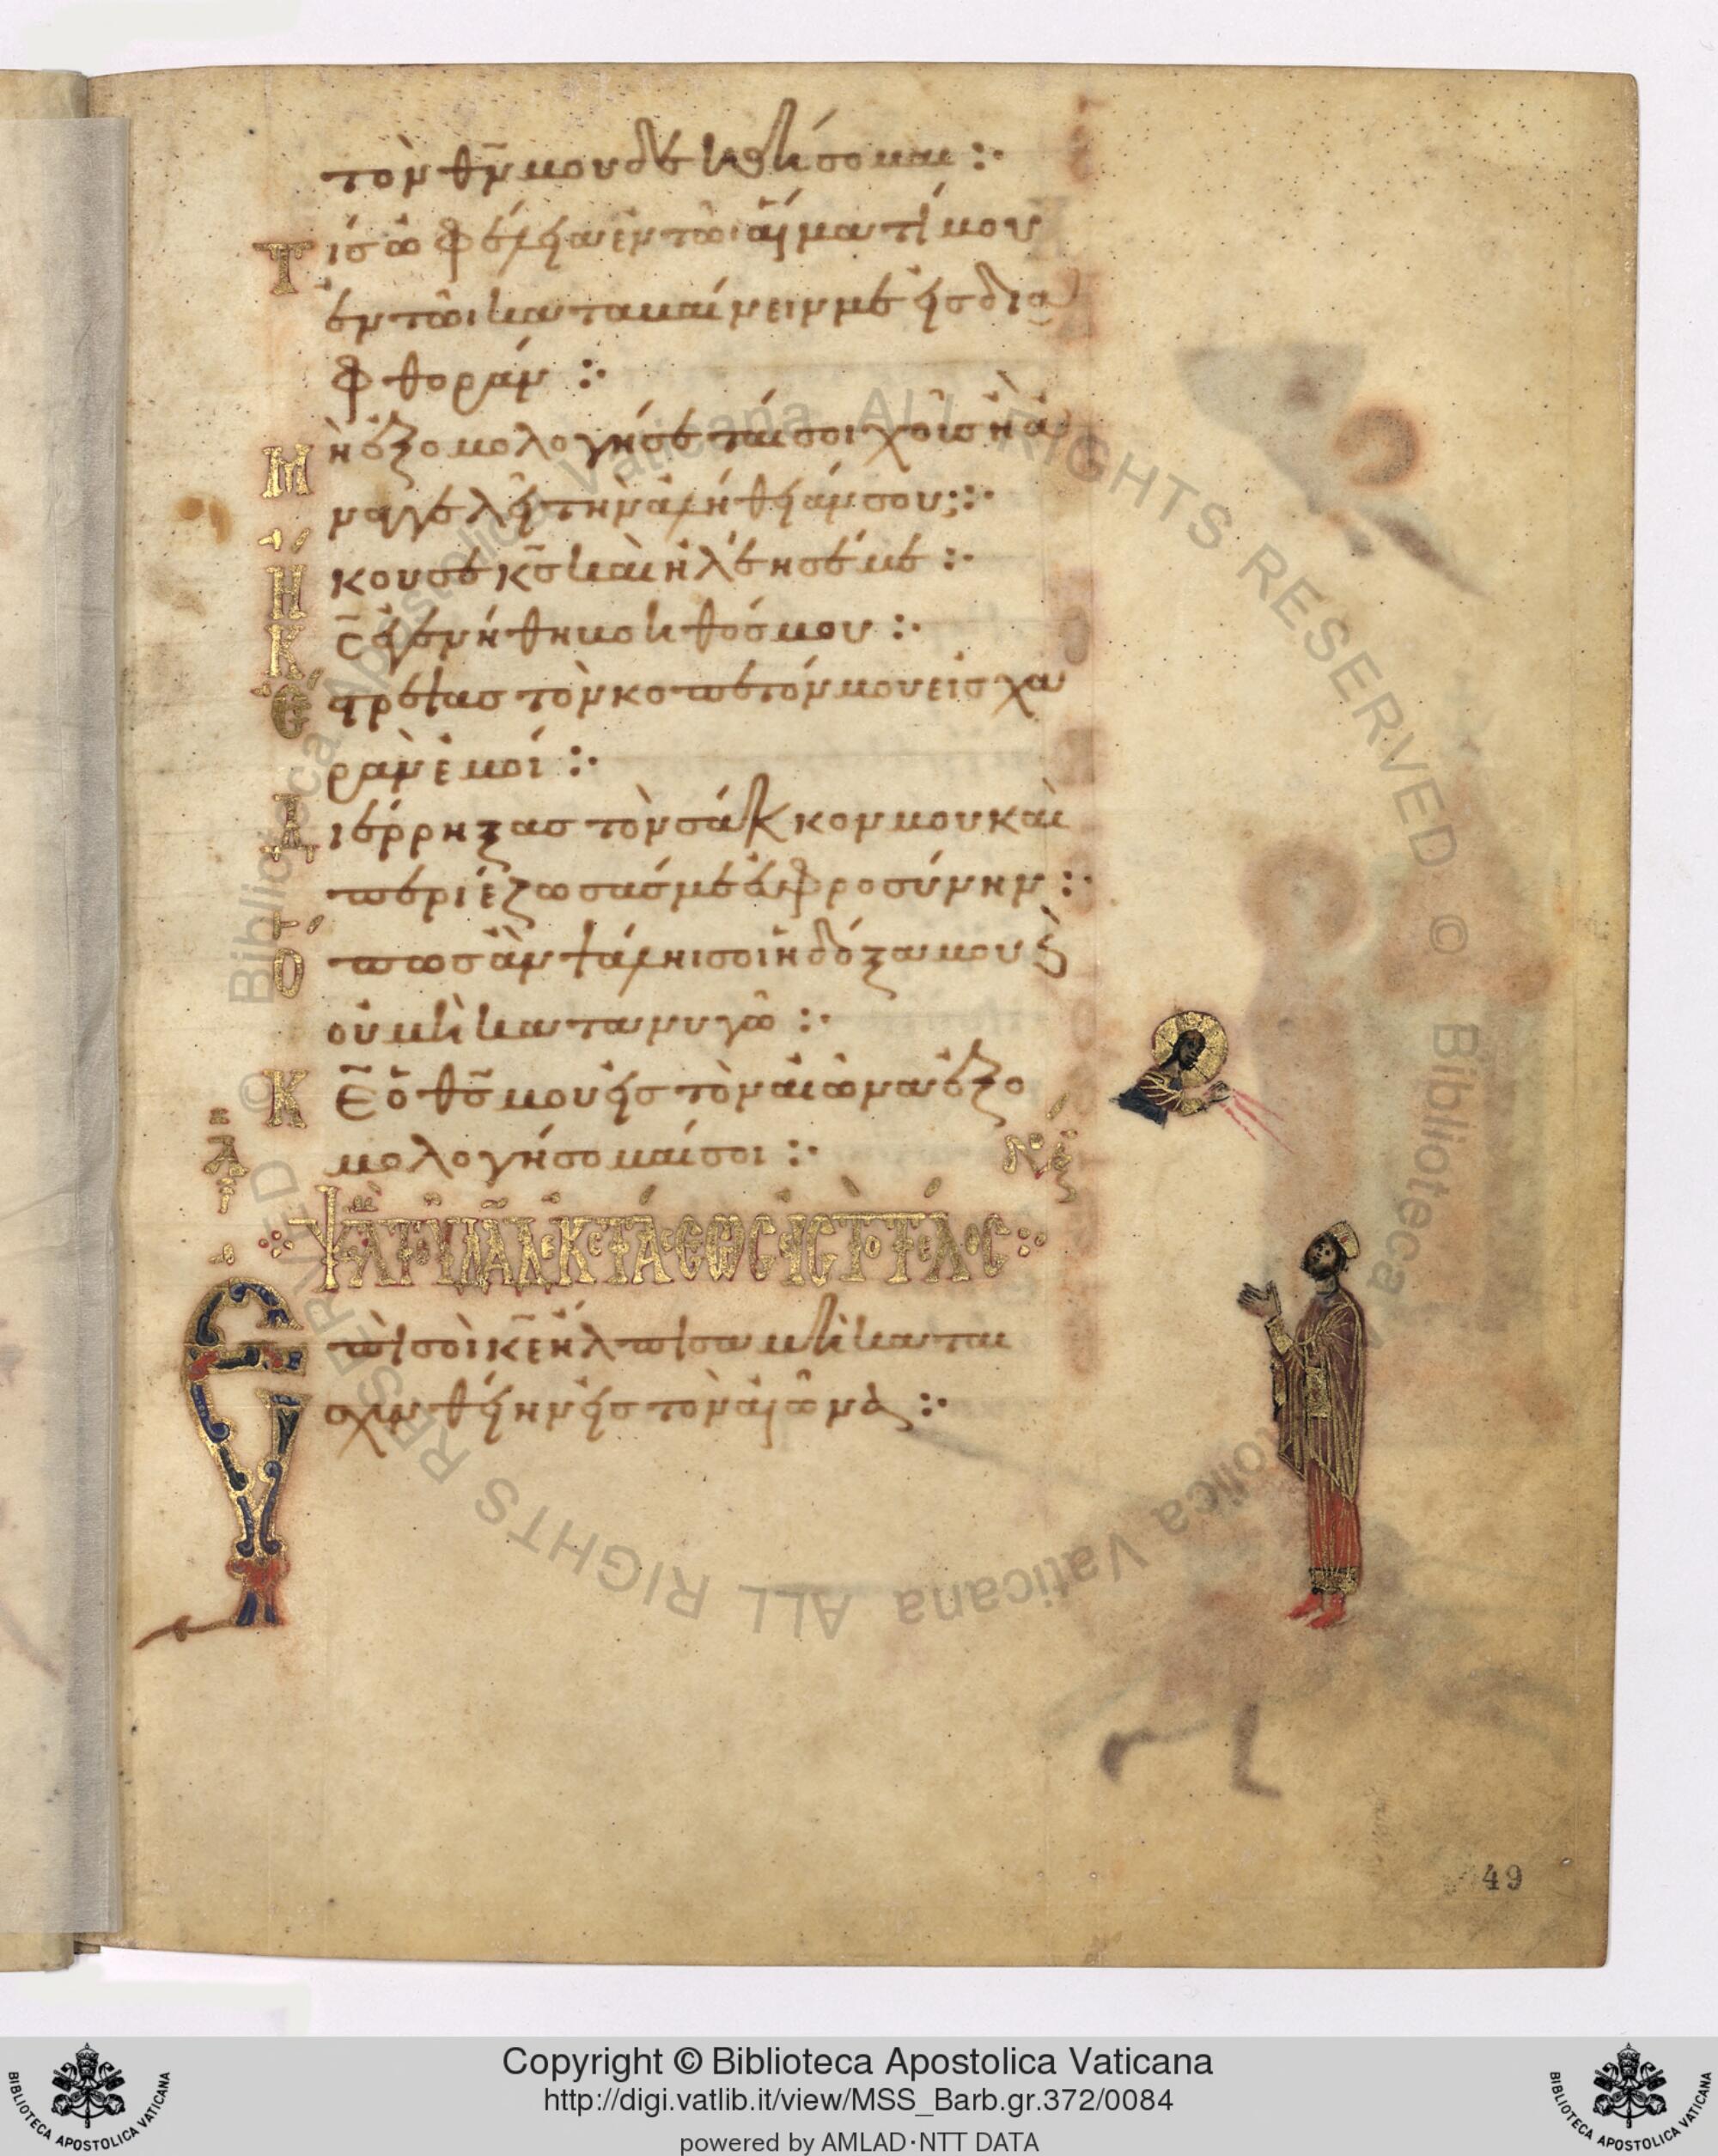 τὸν θ̅ν̅ μου δεηθήσομαι :·
Τίς ὠφέλεια ἐν τῶι αἵματί μου
ἐν τῶι καταβαίνειν με εἰς δια
φθοράν :·
Μὴ ἐξομολογήσεταί σοι χοῦς ἢ ἀ
ναγγελεῖ τὴν ἀλήθειάν σου :·
Ἤκουσε κ̅ς̅ καὶ ἠλέησέ με :·
Κ̅ς̅ ἐγενήθη βοηθός μου :·
Ἔστρεψας τὸν κοπετόν μου εἰς χα
ρὰν ἐμοί :·
Διέρρηξας τὸν σάκκον μου καὶ
περιέζωσάς με εὐφροσύνην :·
Ὅπως ἂν ψάλῃ σοι ἡ δόξα μου κ(αὶ)
οὐ μὴ κατανυγῶ :·
Κ̅ε̅ ὁ θ̅ς̅ μου εἰς τὸν αἰῶνα ἐξο
μολογήσομαί σοι :·
ΨΑΛ ΤΩ ΔΑΔ ΕΚΣΤΑΣΕΩΣ ΕΙΣ ΤΟ ΤΕΛΟΣ :·
Ἐπὶ σοὶ κ̅ε̅ ἤλπισα μὴ καται
σχυνθείην εἰς τὸν αἰῶνα :·
49
© Biblioteca Apostolica Vaticana ALL RIGHTS RESERVED © Biblioteca Apostolica Vaticana ALL RIGHTS RESERVED
Copyright © Biblioteca Apostolica Vaticana
http://digi.vatlib.it/view/MSS_Barb.gr.372/0084
powered by AMLAD·NTT DATA
BIBLIOTECA APOSTOLICA VATICANA
BIBLIOTECA APOSTOLICA VATICANA